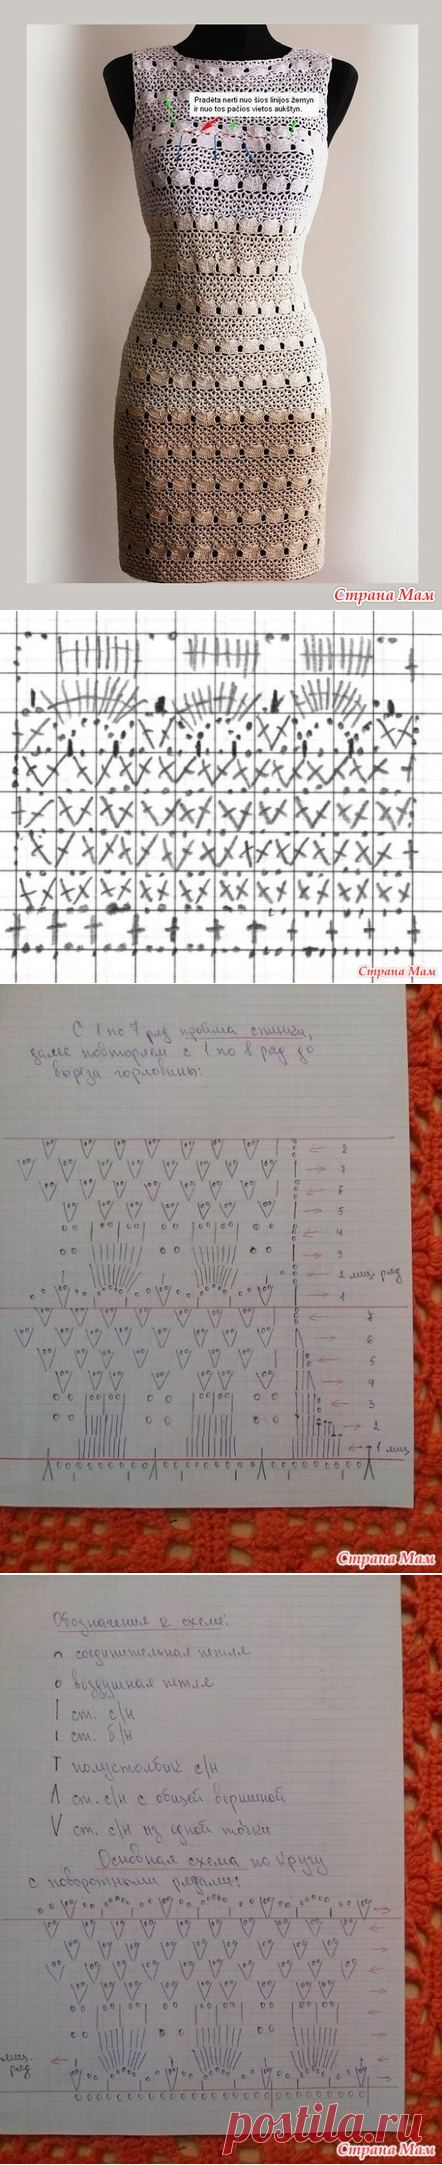 Pradėta nerti nuo šios linijos žemyn
ir nuo tos pačios vietos aukštyn.
Страна Мам
Страна Мам
С 1 по 7 ряд пройма спинки,
далее повторяем с 1 по 8 ряд до
выреза горловины:
8
7
6
5
4
3
2 лиц. ряд
1
6
5
4
3
2
1 лиц.
Страна Мам
Обозначения к схеме:
соединительная петля
воздушная петля
ст. с/н
ст. б/н
полустолбик с/н
ст. с/н с общей вершиной
ст. с/н из одной точки
Основная схема по кругу
с поворотными рядами:
лиц.
ряд
postila.ru
Страна Мам